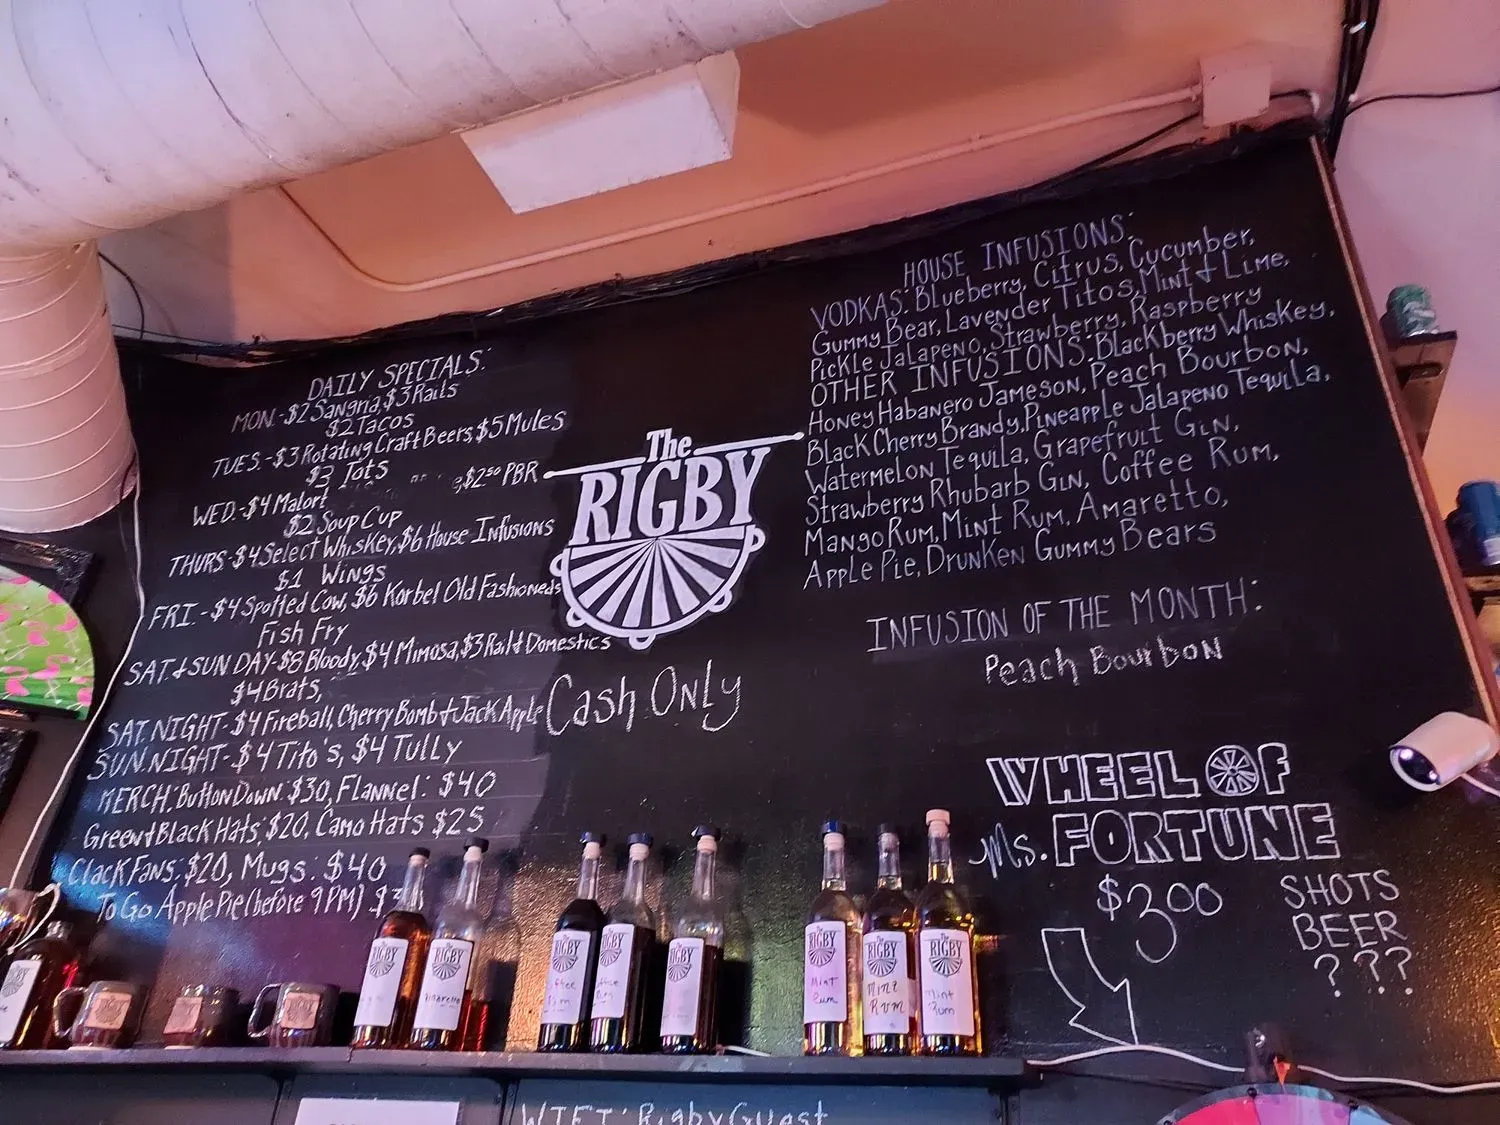 DAILY SPECIALS:
MON.-$2 Sangria, $3 Rails
$2 Tacos
TUES.-$3 Rotating Craft Beers, $5 Mules
$3 Tots
WED.-$4 Malort $2⁵⁰ PBR
$2 Soup Cup
THURS-$4 Select Whiskey, $6 House Infusions
$1 Wings
FRI.-$4 Spotted Cow, $6 Korbel Old Fashioneds
Fish Fry
SAT.+SUN DAY-$8 Bloody, $4 Mimosa, $3 Rail+Domestics
$4 Brats,
SAT. NIGHT-$4 Fireball, Cherry Bomb+Jack Apple
SUN. NIGHT-$4 Tito's, $4 Tully
MERCH: Button Down: $30, Flannel: $40
Green+Black Hats: $20, Camo Hats $25
Clack Fans: $20, Mugs: $40
To Go Apple Pie (before 9PM)
The
RIGBY
Cash Only
HOUSE INFUSIONS:
VODKAS: Blueberry, Citrus, Cucumber,
Gummy Bear, Lavender Titos, Mint+Lime,
Pickle Jalapeno, Strawberry, Raspberry
OTHER INFUSIONS: Blackberry Whiskey,
Honey Habanero Jameson, Peach Bourbon,
Black Cherry Brandy, Pineapple Jalapeno Tequila,
Watermelon Tequila, Grapefruit Gin,
Strawberry Rhubarb Gin, Coffee Rum,
Mango Rum, Mint Rum, Amaretto,
Apple Pie, Drunken Gummy Bears
INFUSION OF THE MONTH:
Peach Bourbon
WHEEL OF
Ms. FORTUNE
$3.00
SHOTS
BEER
? ??
The RIGBY
The RIGBY
Amaretto
RIGBY
RIGBY
RIGBY
The RIGBY
Mint
Rum
The RIGBY
Mint
Rum
The RIGBY
Mint
Rum
WIFI: Rigby Guest